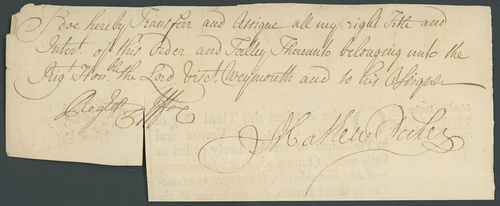 I doe hereby Transferr and Assigne all my right Title and
Interst. of this Order and Talley Thereunto belonging unto the
Rigt. Honble. the Lord Visct. Weymouth and to his Assignes
Regtd.
Mathew Decker